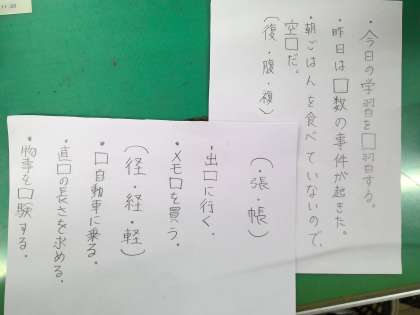 ・今日の学習を□習する。
・昨日は□数の事件が起きた。
・朝ごはんを食べていないので、
空□だ。
(復・腹・複)
(張・帳)
・出□に行く。
・メモ□を買う。
(径・経・軽)
・□自動車に乗る。
・直□の長さを求める。
・物事を□験する。